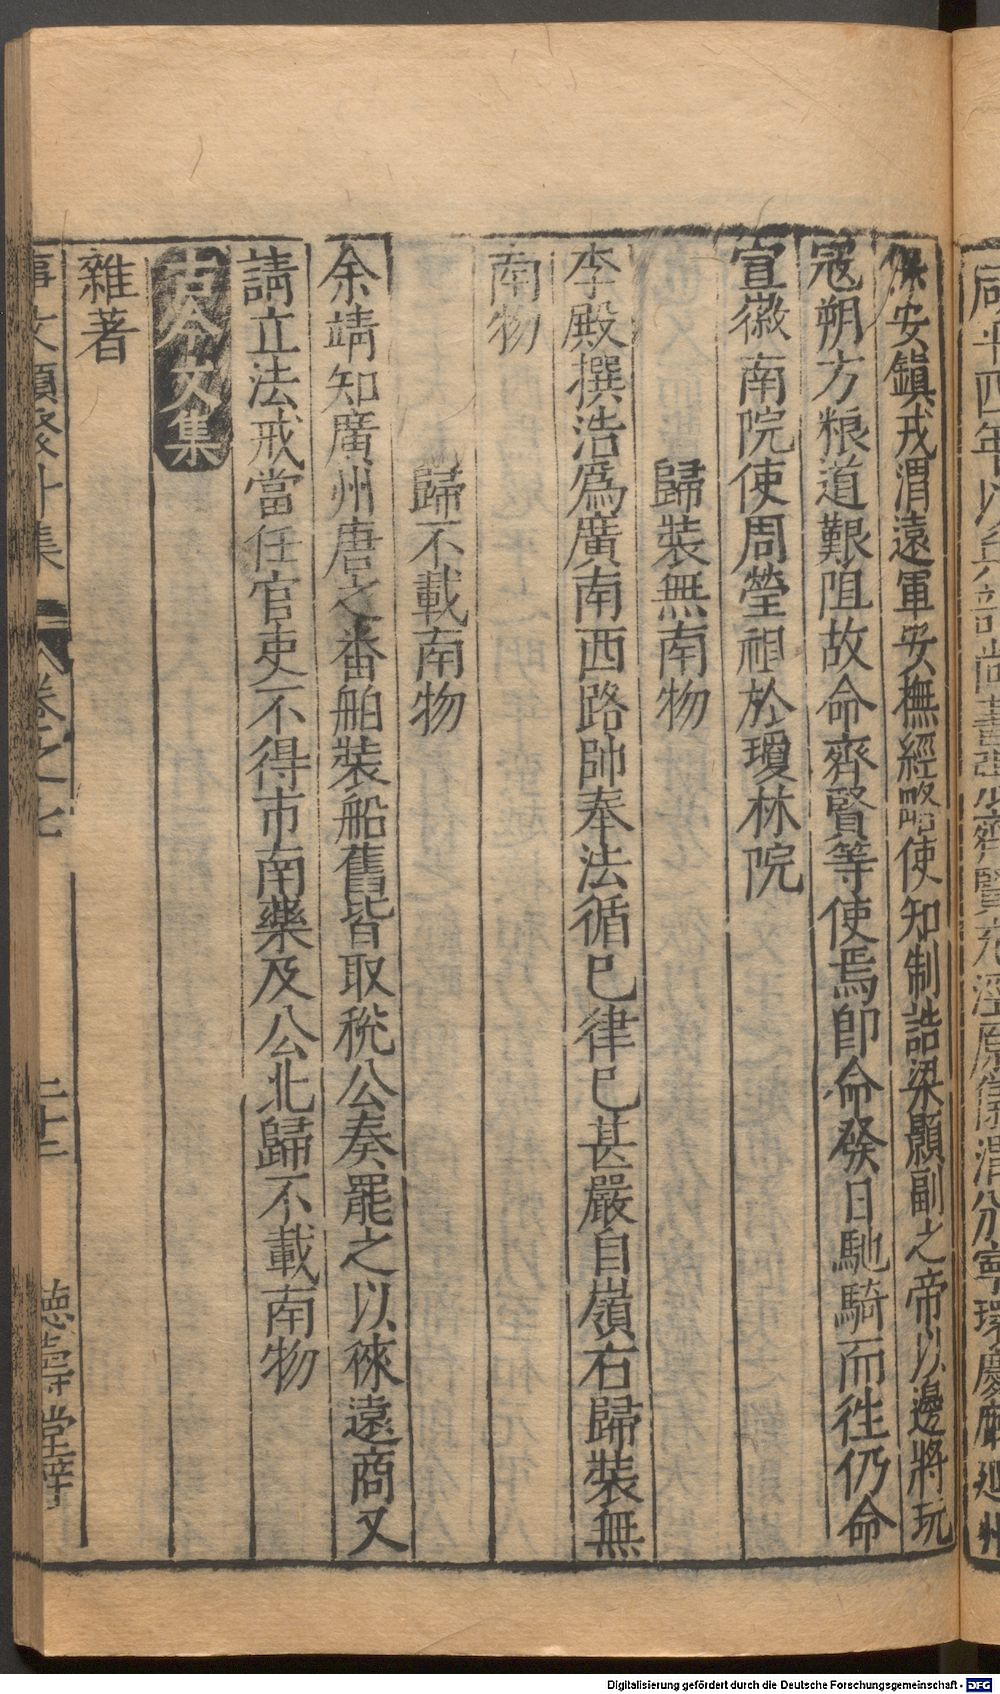 咸平四年以兵部尚書張齊賢充涇原儀渭邠寧環慶鄜延州
保安鎮戎渭遠軍安撫經略使知制誥梁顥副之帝以邊將玩
寇朔方粮道艱阻故命齊賢等使焉即命發日馳騎而徃仍命
宣徽南院使周瑩祖於瓊林院
歸裝無南物
李殿撰浩爲廣南西路帥奉法循巳律巳甚嚴自嶺右歸裝無
南物
歸不載南物
余靖知廣州唐之番舶裝船舊皆取稅公奏罷之以徠遠商又
請立法戒當任官吏不得市南藥及公北歸不載南物
古今文集
雜著
事文類聚外集 卷之七 二十二 德壽堂梓
Digitalisierung gefördert durch die Deutsche Forschungsgemeinschaft - DFG